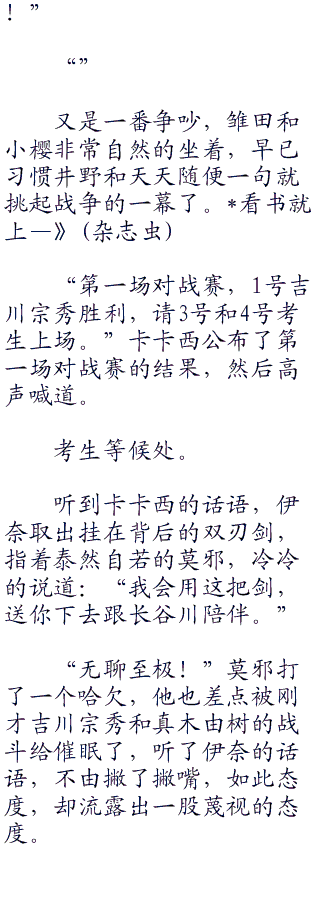 ！”
“”
又是一番争吵，雏田和
小樱非常自然的坐着，早已
习惯井野和天天随便一句就
挑起战争的一幕了。*看书就
上—》（杂志虫）
“第一场对战赛，1号吉
川宗秀胜利，请3号和4号考
生上场。”卡卡西公布了第
一场对战赛的结果，然后高
声喊道。
考生等候处。
听到卡卡西的话语，伊
奈取出挂在背后的双刃剑，
指着泰然自若的莫邪，冷冷
的说道：“我会用这把剑，
送你下去跟长谷川陪伴。”
“无聊至极！”莫邪打
了一个哈欠，他也差点被刚
才吉川宗秀和真木由树的战
斗给催眠了，听了伊奈的话
语，不由撇了撇嘴，如此态
度，却流露出一股蔑视的态
度。